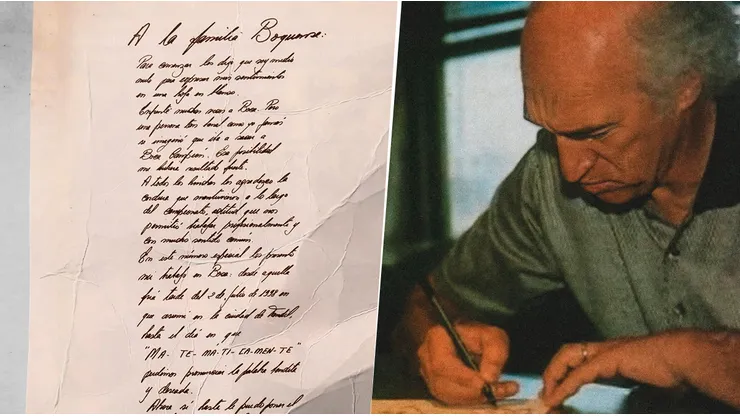 A la familia Boquense:
Para comenzar les digo que soy medio
malo para expresar mis sentimientos
en una hoja en blanco.
Enfrenté muchas veces a Boca. Pero
una persona tan como yo jamás
se imaginó que iba a sacar a
Boca Campeón. Esa posibilidad
me resultado
A todos los hinchas les agradezco la
conducta que mantuvieron a lo largo
del campeonato, actitud que nos
permitió trabajar profesionalmente y
con mucho sentido común
En este número especial les presento
mi trabajo en Boca: desde aquella
fría tarde del 2 de Julio de 1998 en
que asumí en la ciudad de Tandil,
hasta el día en que
"MA-TE-MA-TI-CA-MEN-TE"
pudimos pronunciar la palabra bendita
y deseada.
Ahora si hasta le puede poner el